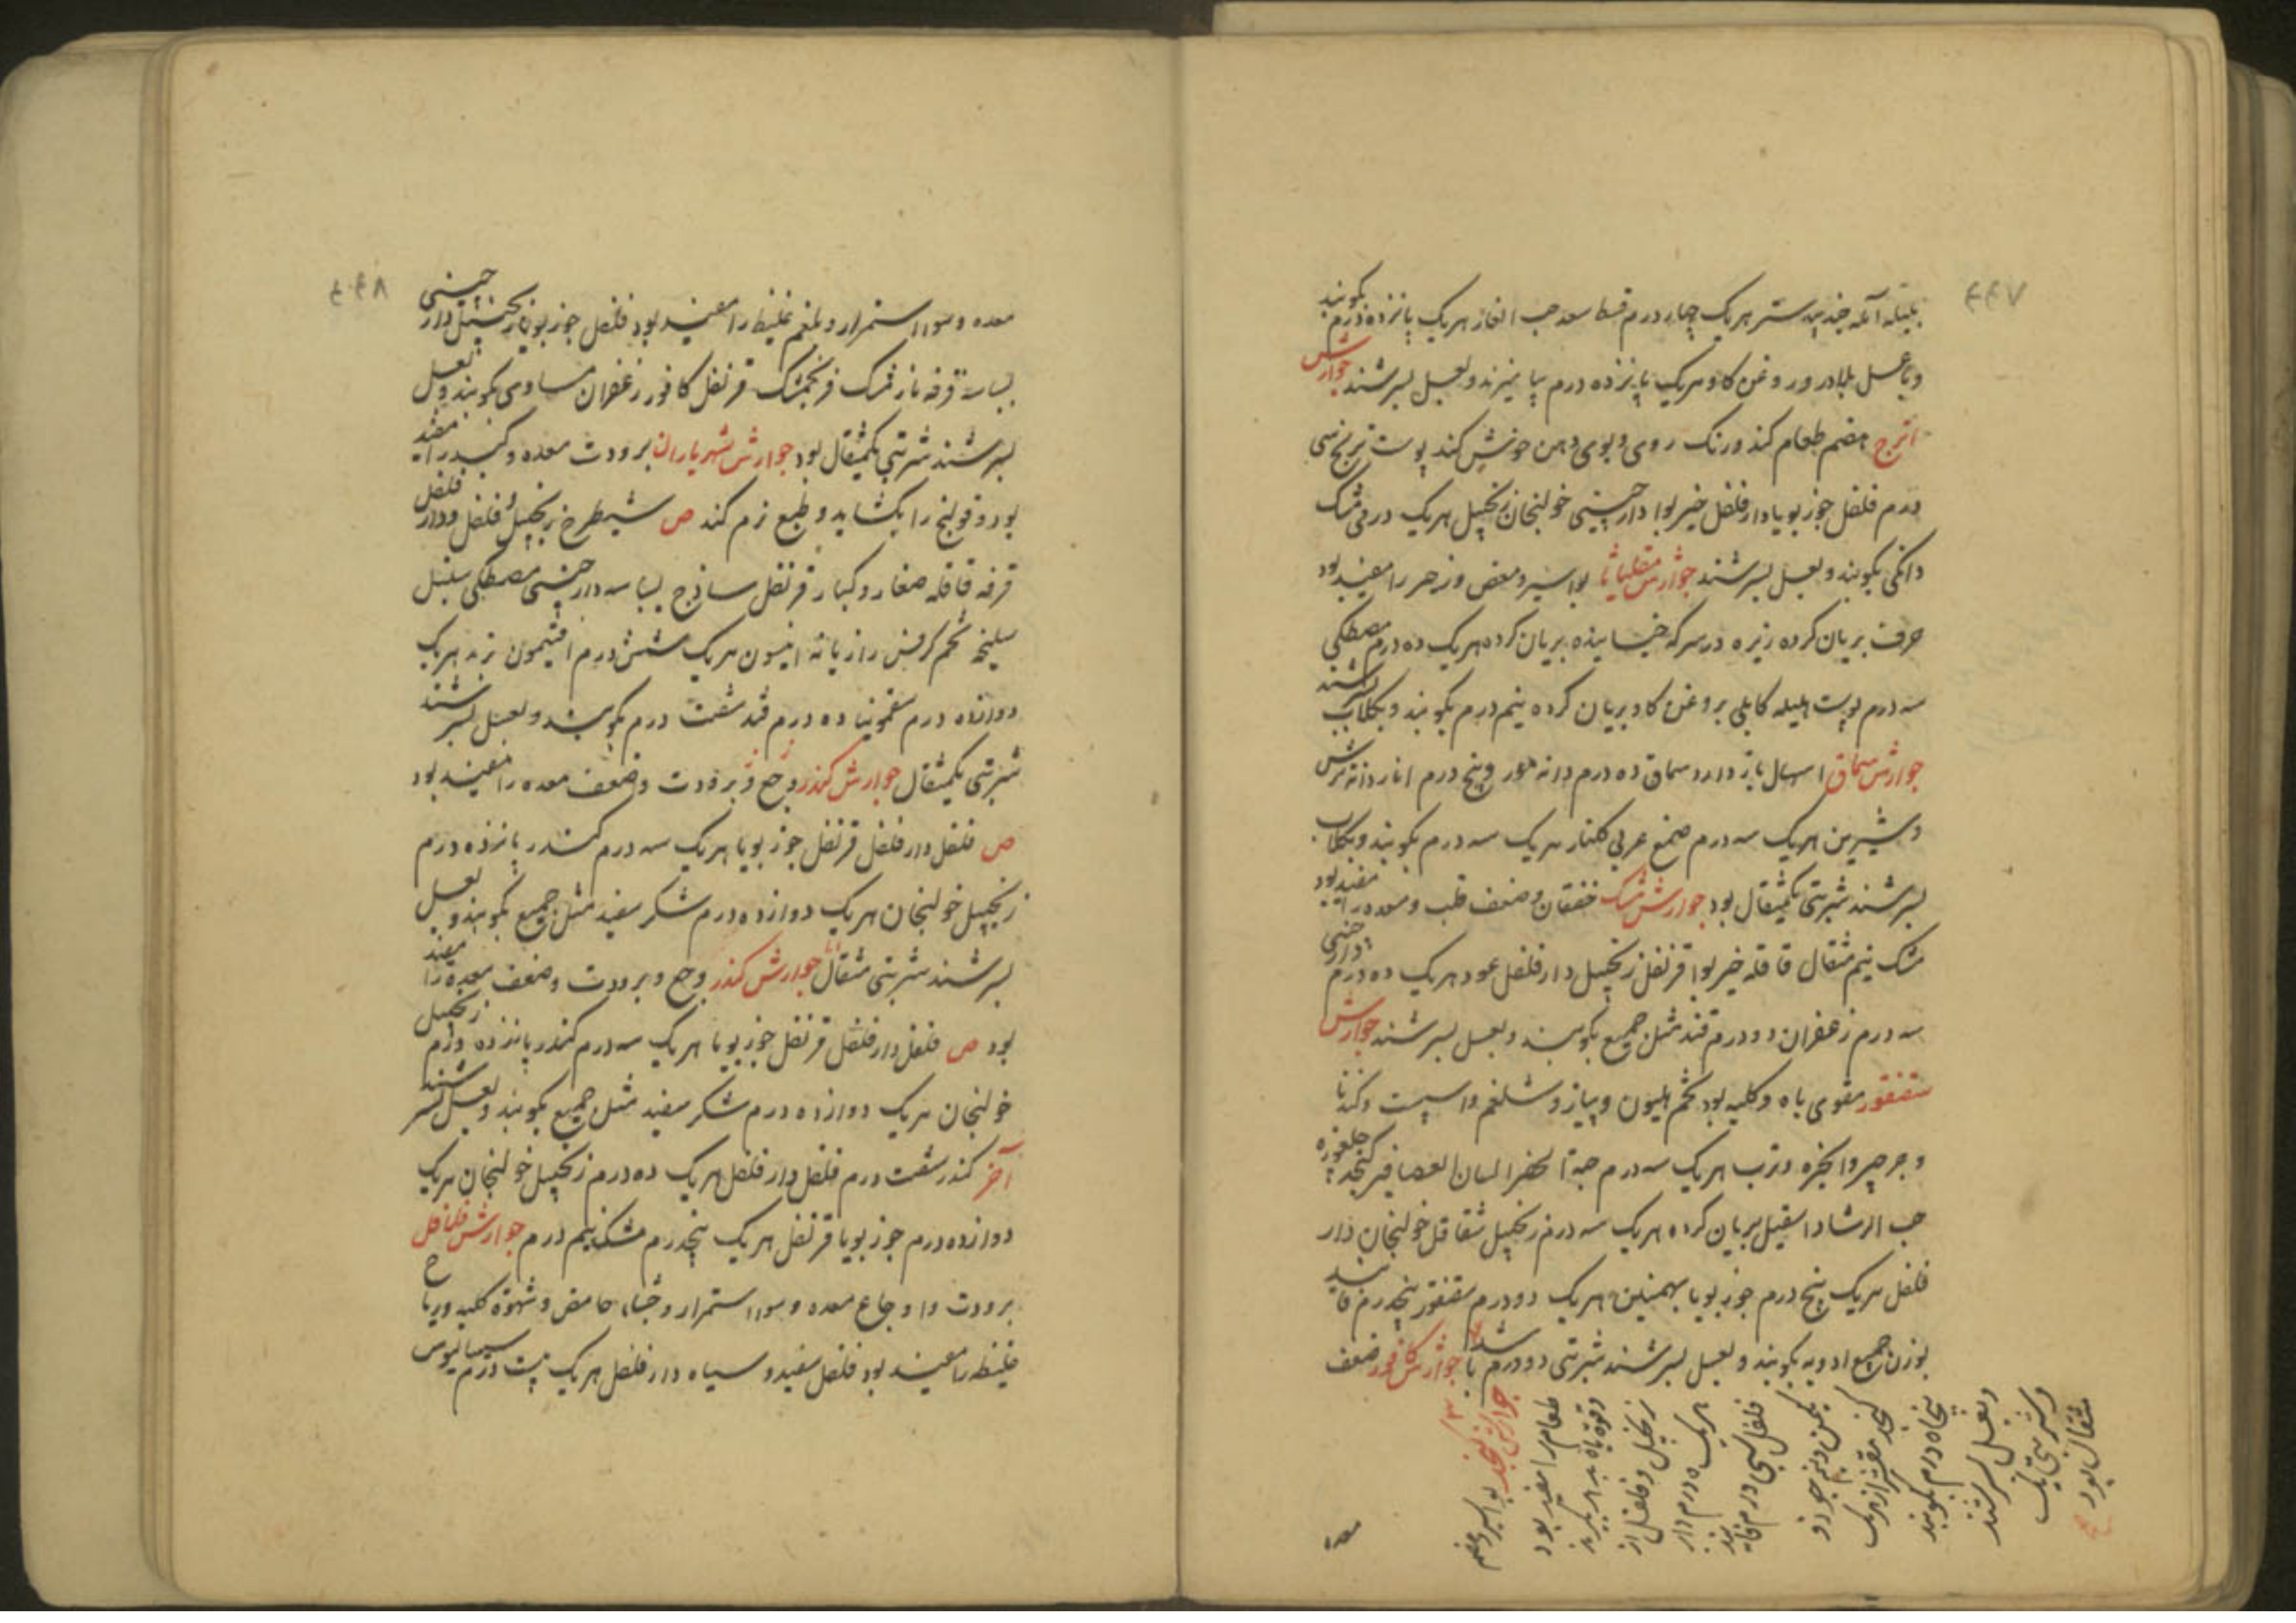 ۴۴۷
بلیله آمله جندبیدستر هریک چهار درم قسط سعد حب الغار هریک پانزده درم بکوبند
وبا عسل بلادر و روغن کاو هریک پانزده درم بیامیزند و بعسل بسرشند جوارش
اترج هضم طعام کند و رنک روی و بوی دهن خوش کند پوست ترنج سی
درم فلفل جوزبویا دارفلفل خیربوا دارچینی خولنجان زنجبیل هریک درمی مشک
دانکی بکوبند و بعسل بسرشند جوارش مقلیاثا بواسیر و مغص و زحیر را مفید بود
حرف بریان کرده زیره در سرکه خیسانیده بریان کرده هریک ده درم مصطکی
سه درم پوست هلیله کابلی بروغن کاو بریان کرده نیم درم بکوبند و بکلاب بسرشند
جوارش سماق اسهال باز دارد سماق ده درم دانه مورد پنج درم انار دانه ترش
و شیرین هریک سه درم صمغ عربی کلنار هریک سه درم بکوبند و بکلاب
بسرشند شربتی یکمثقال بود جوارش مشک خفقان و ضعف قلب و معده را مفید بود
مشک نیم مثقال قاقله خیربوا قرنفل زنجبیل دارفلفل عود هریک ده درم دارچینی
سه درم زعفران دو درم قند مثل جمیع بکوبند و بعسل بسرشند جوارش
سقنقور مقوی باه و کلیه بود تخم هلیون و پیاز و شلغم و اسپست و کندنا
و جرجیر و انجره و ترب هریک سه درم حبة الخضرا لسان العصافیر کنجد جلغوزه
حب الرشاد اسقیل بریان کرده هریک سه درم زنجبیل شقاقل خولنجان دار
فلفل هریک پنج درم جوزبویا بهمنین هریک دو درم سقنقور پنجدرم فانید
بوزن جمیع ادویه بکوبند و بعسل بسرشند شربتی دو درم باشد جوارش کافور ضعف
جوارش کنجد بواسیر و هضم
طعام را مفید بود
وقوة باه بد بکیرند
زنجبیل و فلفل از
هریک ده درم دار
فلفل سی درم فانید
یکمن و نیم جوز و
کنجد مقشر از هریک
پنجاه درم بکوبند
وبعسل بسرشند
و شربتی یک
مثقال بود
معده
۴۴۸
معده و سوء استمرار و بلغم غلیظ را مفید بود فلفل جوزبویا زنجبیل دارچینی
بسباسه قرفه نارمشک فرنجمشک قرنفل کافور زعفران مساوی بکوبند و بعسل
بسرشند شربتی یکمثقال بود جوارش شهریاران برودت معده و کبد را مفید
بود و قولنج را بکشاید و طبع نرم کند ص شیطرج زنجبیل فلفل و دارفلفل
قرفه قاقله صغار و کبار قرنفل ساذج بسباسه دارچینی مصطکی سنبل
سلیخه تخم کرفس رازیانه انیسون هریک شش درم افتیمون تربد هریک
دوازده درم سقمونیا ده درم قند شصت درم بکوبند و بعسل بسرشند
شربتی یکمثقال جوارش کندر وجع و برودت و ضعف معده را مفید بود
ص فلفل دارفلفل قرنفل جوزبویا هریک سه درم کندر پانزده درم
زنجبیل خولنجان هریک دوازده درم شکر سفید مثل جمیع بکوبند و بعسل
بسرشند شربتی مثقال جوارش کندر وجع و برودت و ضعف معده را مفید
بود ص فلفل دارفلفل قرنفل جوزبویا هریک سه درم کندر پانزده درم زنجبیل
خولنجان هریک دوازده درم شکر سفید مثل جمیع بکوبند و بعسل بسرشند
آخر کندر شصت درم فلفل دارفلفل هریک ده درم زنجبیل خولنجان هریک
دوازده درم جوزبویا قرنفل هریک پنجدرم مشک نیم درم جوارش فلافل
برودت و اوجاع معده و سوء استمرار و جشاء حامض و شهوة کلبیه و ریاح
غلیظه را مفید بود فلفل سفید و سیاه دارفلفل هریک بیست درم سیسالیوس